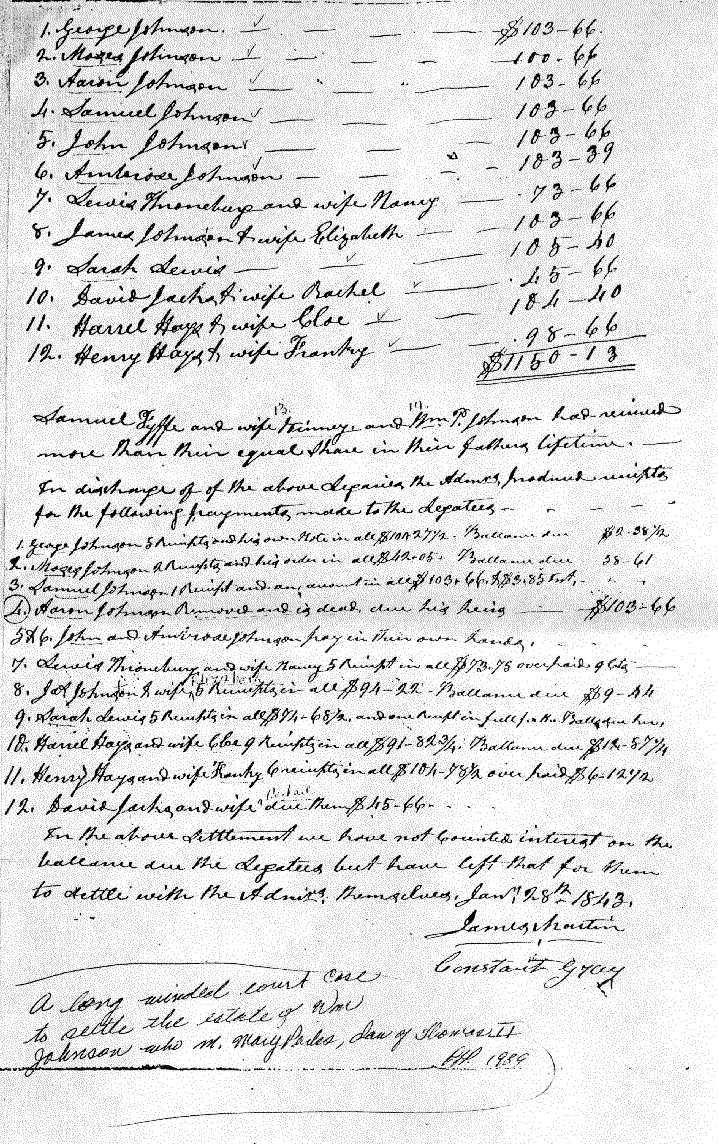 1. George Johnson. — — — — $103-66.
2. Moses Johnson — — — — 100-66
3. Aaron Johnson — — — — 103-66
4. Samuel Johnson — — — 103-66
5. John Johnson — — — 103-66
6. Ambrose Johnson — — — 103-39
7. Lewis Throneburg and wife Nancy — . 73-66
8. James Johnson & wife Elizabeth — — 103-66
9. Sarah Lewis — — — 105-40
10. David Jacks & wife Rachel — .45-66
11. Harrel Hays & wife Cloe — — 104-40
12. Henry Hays & wife Franky — — . 98-66
$1150-13
13. 14.
Samuel Fyffe and wife and Wm P. Johnson had received
more than their equal share in their fathers lifetime. —
In discharge of of the above Legacies the Admrs, produced receipts
for the following payments made to the Legatees — - - -
1. George Johnson 5 Receipts and his own Note in all $101-27½ - Ballance due $2-38½
2. Moses Johnson 2 Receipts and his order in all $42-05. Ballance due 38-61
3. Samuel Johnson 1 Receipt and an, amount in all $103-66. & $3.85
4. Aaron Johnson Removed and is dead due his heirs — — $103-66
5 & 6. John and Ambrose Johnson pay in their own hands.
7. Lewis Throneburg and wife Nancy 5 Receipt in all $73.75 over paid 9 cts —
Elizabeth
8. Jas Johnson & wife, 5 Receipts in all $94-22 - Ballance due $9-44
9. Sarah Lewis 5 Receipts in all $74-68½, and one Receipt in full for the
10. Harrel Hays and wife Cloe 9 Receipts in all $91-82¾. Ballance due $12-57¼
11. Henry Hays and wife Franky 6 receipts in all $104-78½ over paid $6-12½
Rachael
12. David Jacks, and wife ^ due them $45-66- . . .
In the above Settlement we have not Counted interest on the
ballance due the Legatees but have left that for them
to settle with the Admrs, themselves. Jany 28th 1843.
James Martin
Constant Gray
A long winded court case
to settle the estate of Wm
Johnson who m. Mary Parks, Dau of Thomas II
1989